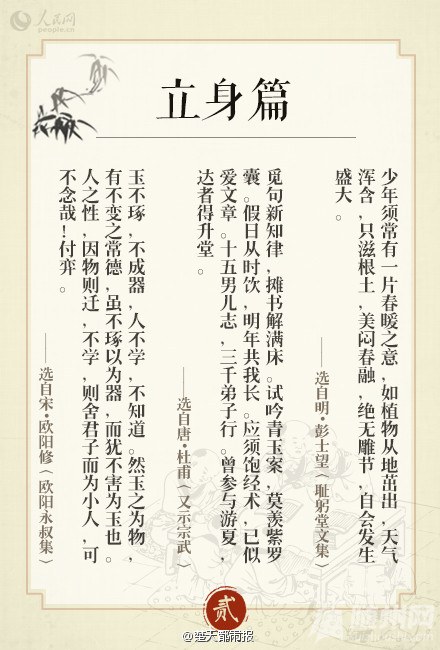 人民网
people.cn
立身篇
少年须常有一片春暖之意，如植物从地茁出，天气
浑含，只滋根土，美闷春融，绝无雕节，自会发生
盛大。
——选自明·彭士望（耻躬堂文集）
觅句新知律，摊书解满床。试吟青玉案，莫羡紫罗
囊。假日从时饮，明年共我长。应须饱经术，已似
爱文章。十五男儿志，三千弟子行。曾参与游夏，
达者得升堂。
——选自唐·杜甫（又示宗武）
玉不琢，不成器，人不学，不知道。然玉之为物，
有不变之常德，虽不琢以为器，而犹不害为玉也。
人之性，因物则迁，不学，则舍君子而为小人，可
不念哉！付弈。
——选自宋·欧阳修（欧阳永叔集）
贰
@楚天都市报